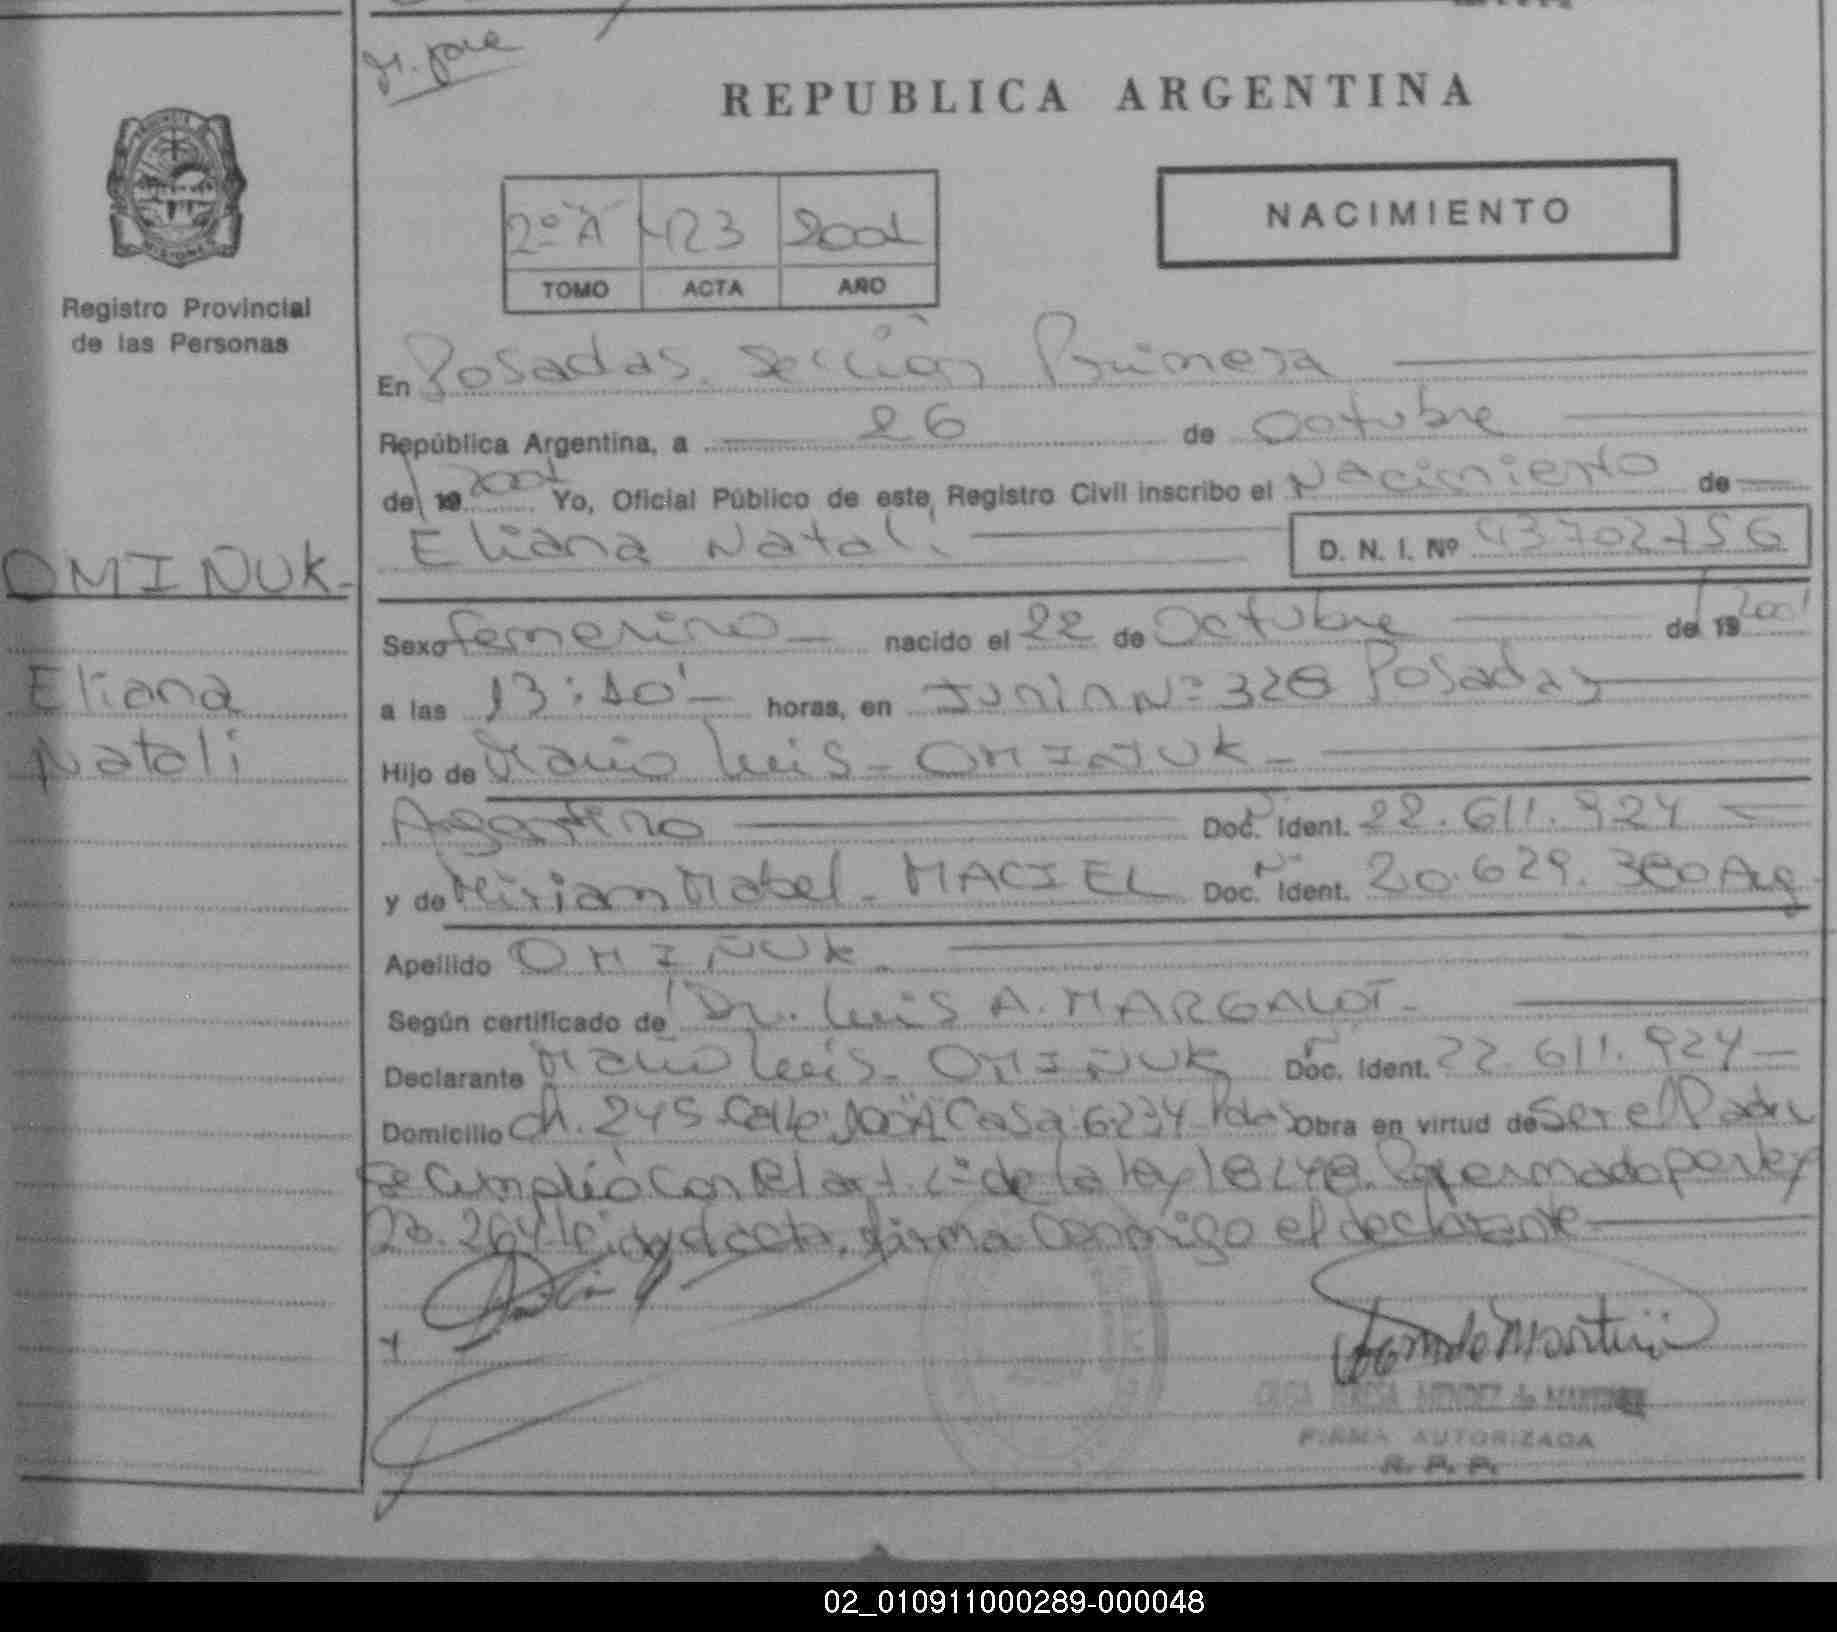 REPUBLICA ARGENTINA
NACIMIENTO
2º "A" 423 2001
TOMO ACTA AÑO
Registro Provincial
de las Personas
En Posadas. Sección Primera
República Argentina, a 26 de Octubre
de 19 2001 Yo, Oficial Público de este Registro Civil inscribo el Nacimiento de
Eliana Natali D. N. I. Nº 43702756
OMIÑUK-
Eliana
Natali
Sexo femenino nacido el 22 de Octubre de 19 2001
a las 13:10' horas, en Junin Nº 328 Posadas
Hijo de Mario Luis - OMIÑUK -
Argentino Doc. Ident. 22.611.924
y de Miriam Mabel - MACIEL Doc. Ident. 20.629.380 Arg.
Apellido OMIÑUK -
Según certificado de Dr. Luis A. MARGALOT -
Declarante Mario Luis - OMIÑUK Doc. Ident. 22.611.924
Domicilio Ch. 245 Calle Casa: 6234 Pdas Obra en virtud de Ser el Padre
Se Cumplió Con el art. de la Ley 18248. por Ley
23.264 leida el acta, firma Conmigo el declarante
MENDEZ de MARTINEZ
FIRMA AUTORIZADA
R. P. P.
02_010911000289-000048